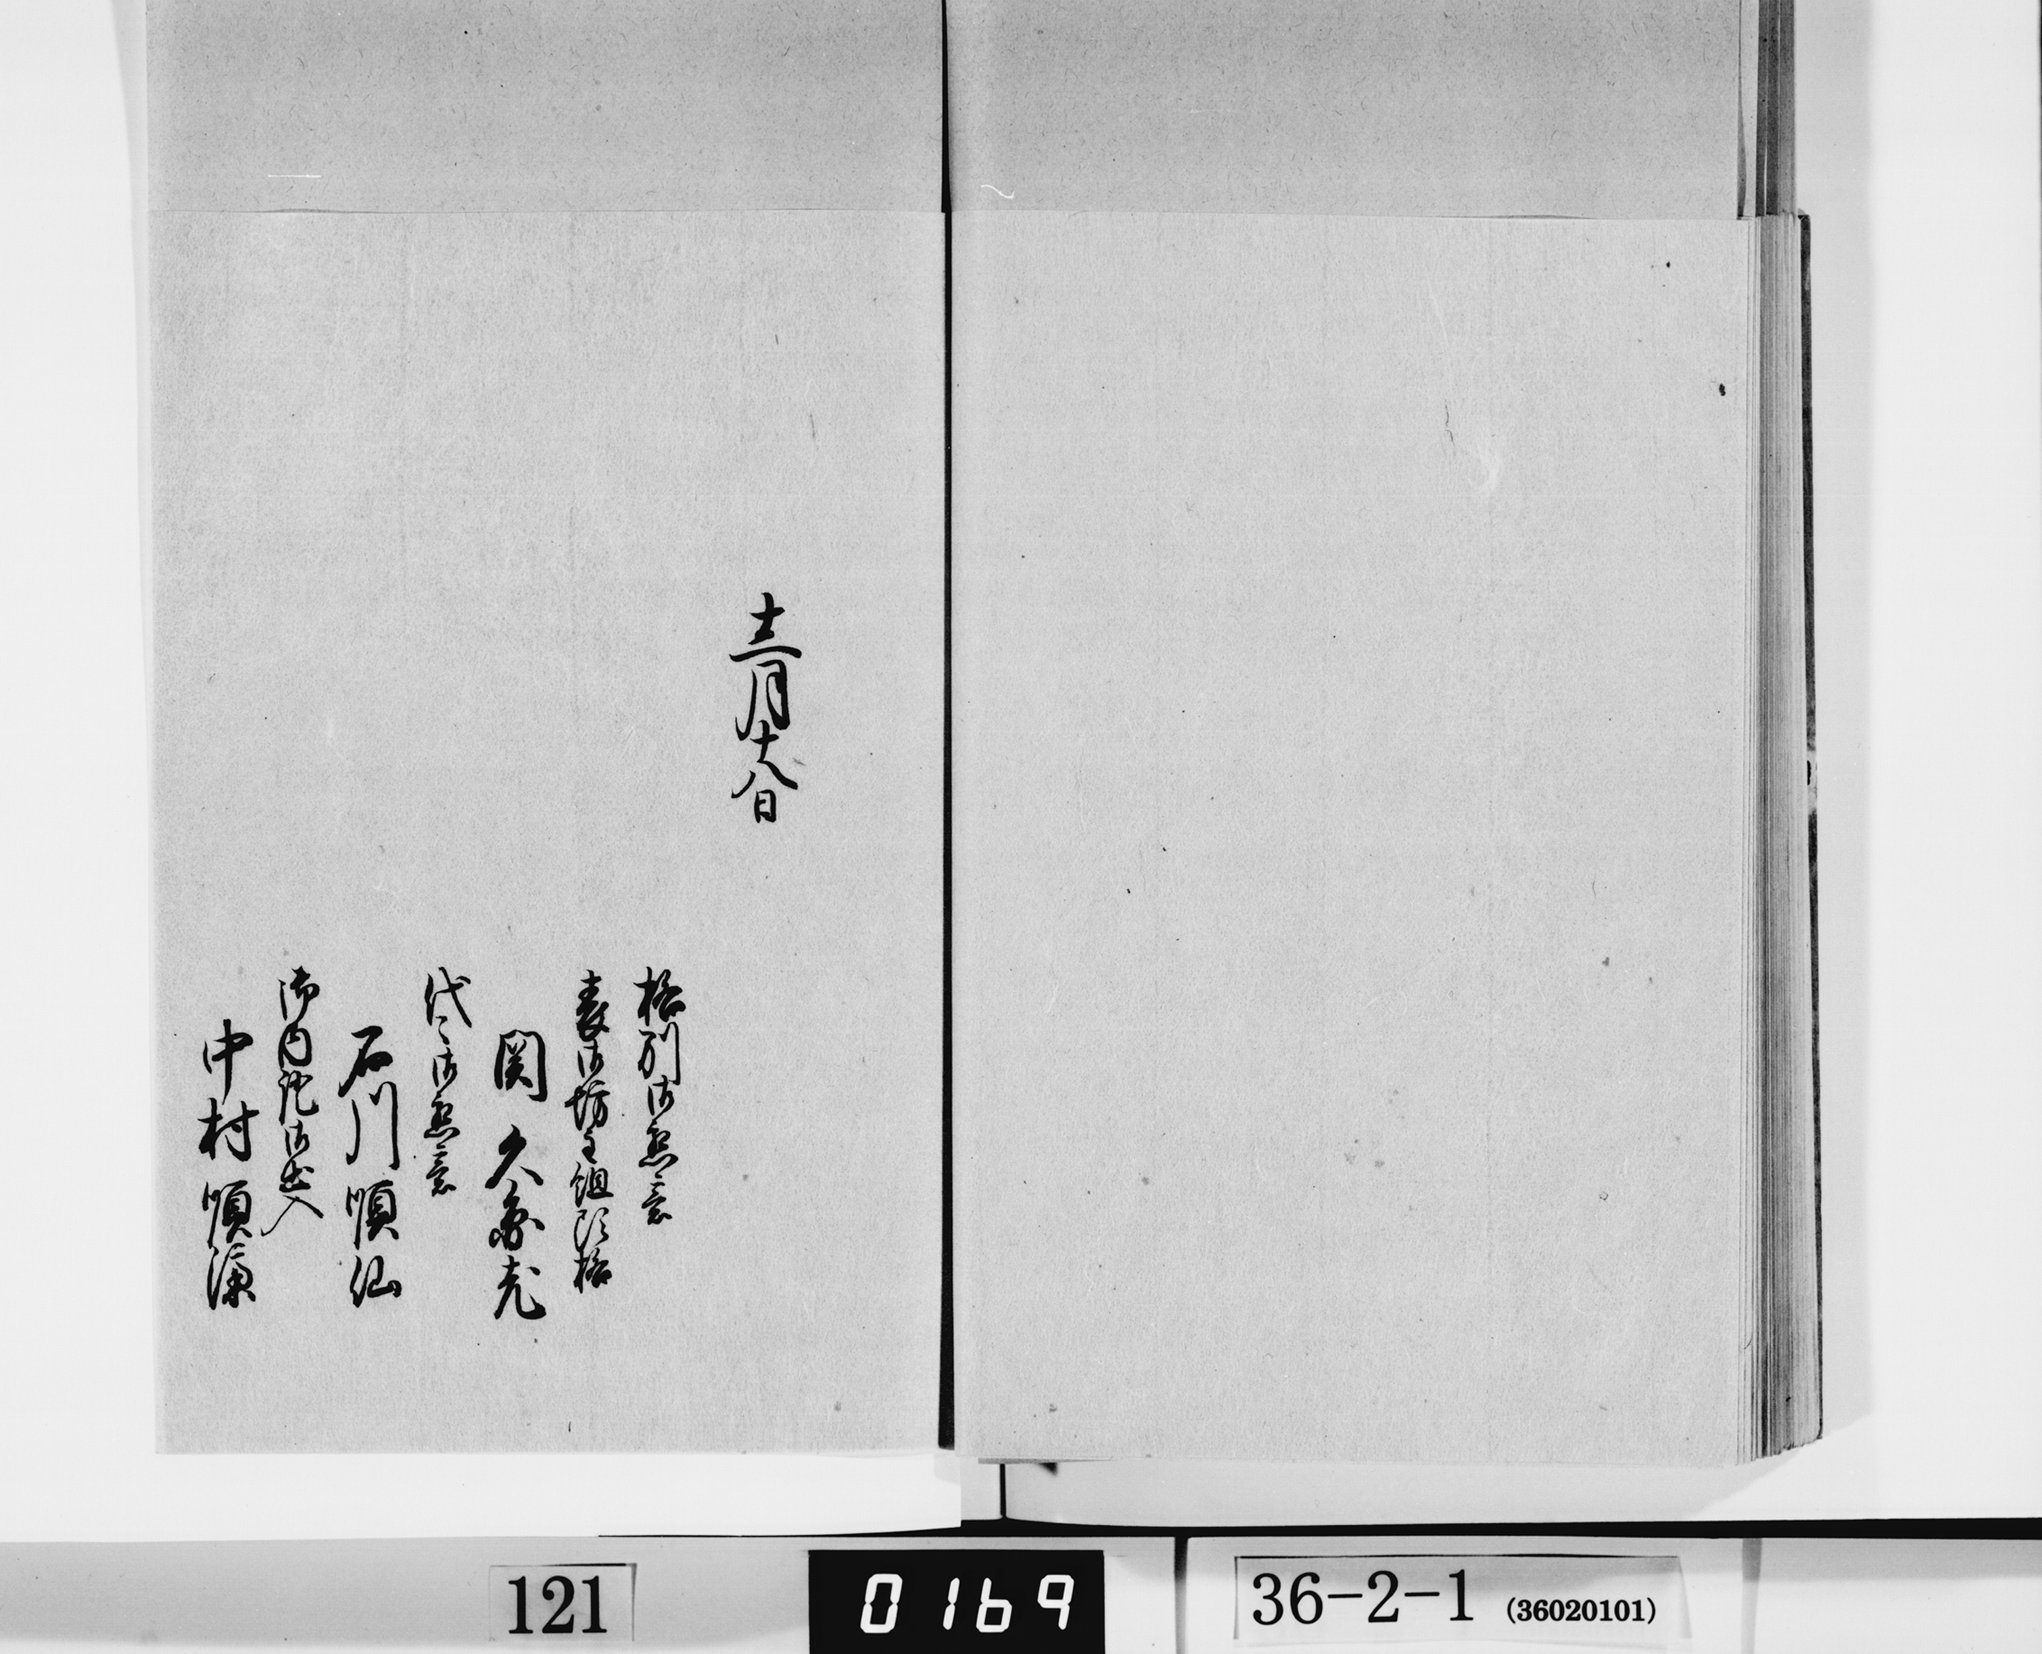 十二月十八日
格別御懇意
表御坊主組頭格
関久
代々御懇意
石川順仙
御内証御出入
中村順
121
0169
36-2-1 (36020101)